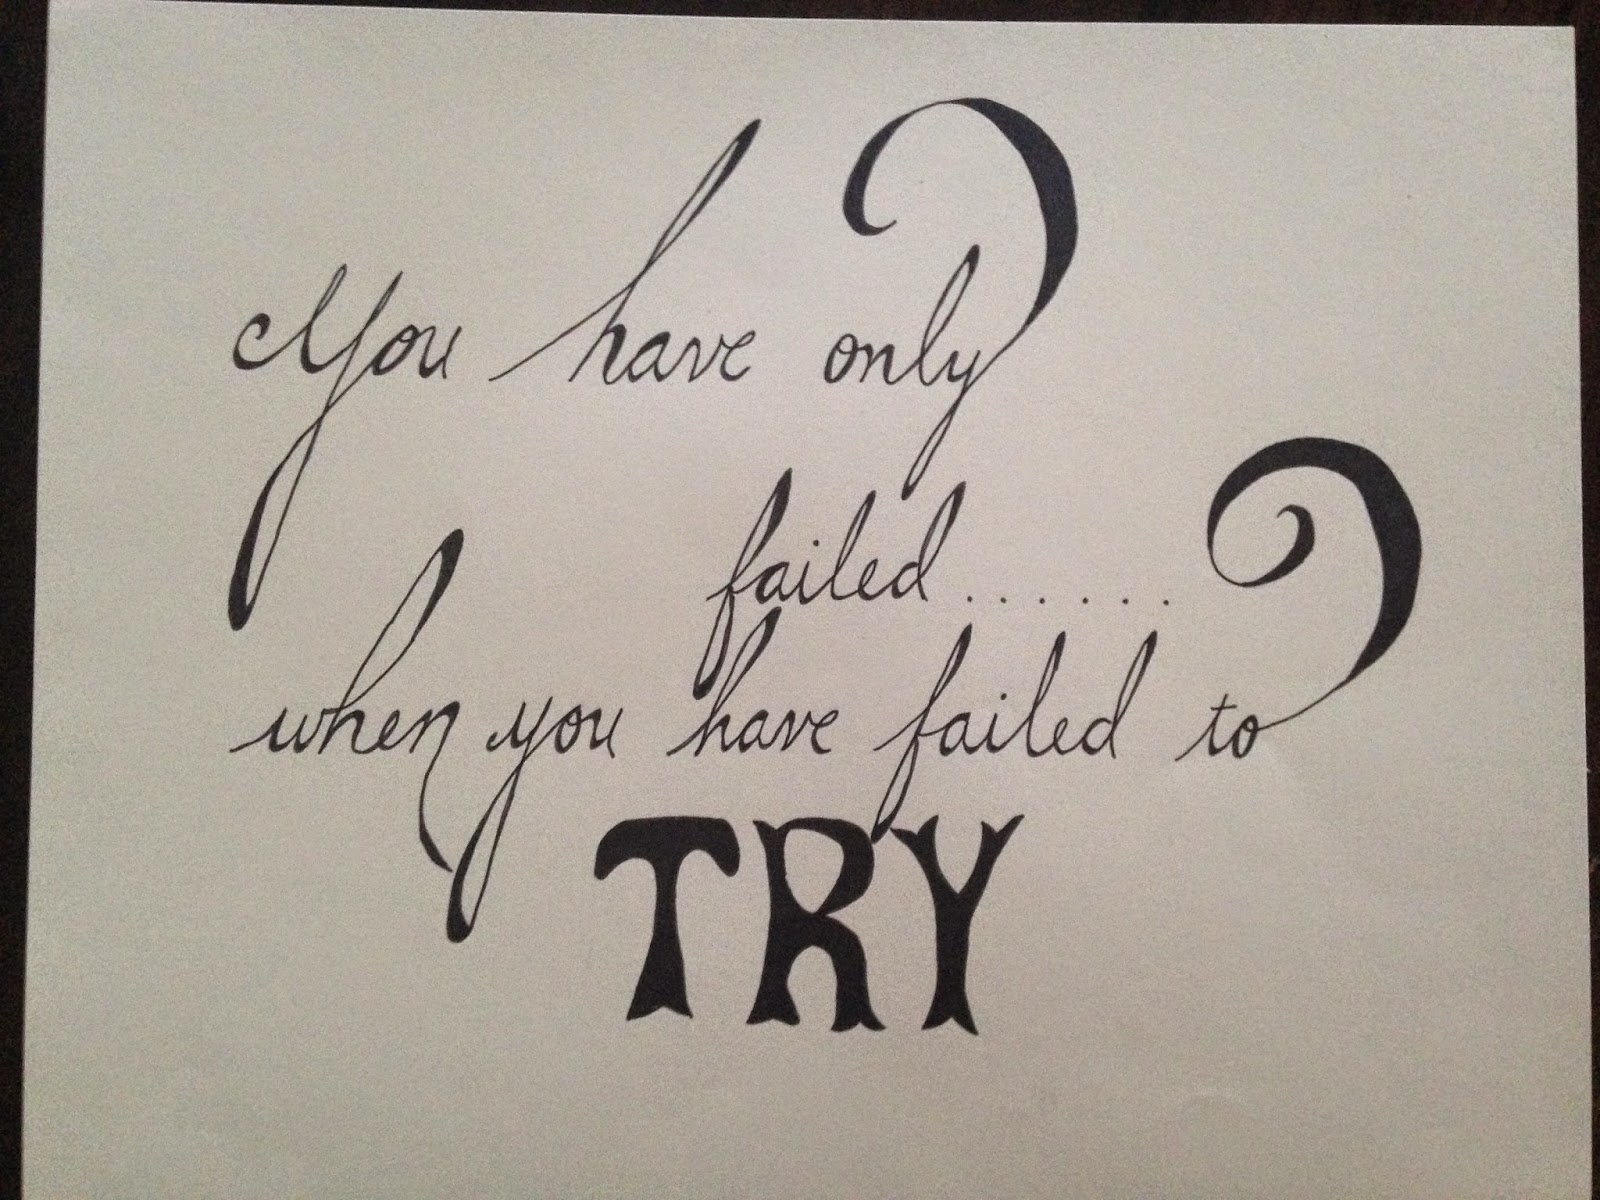 You have only
failed......
when you have failed to
TRY